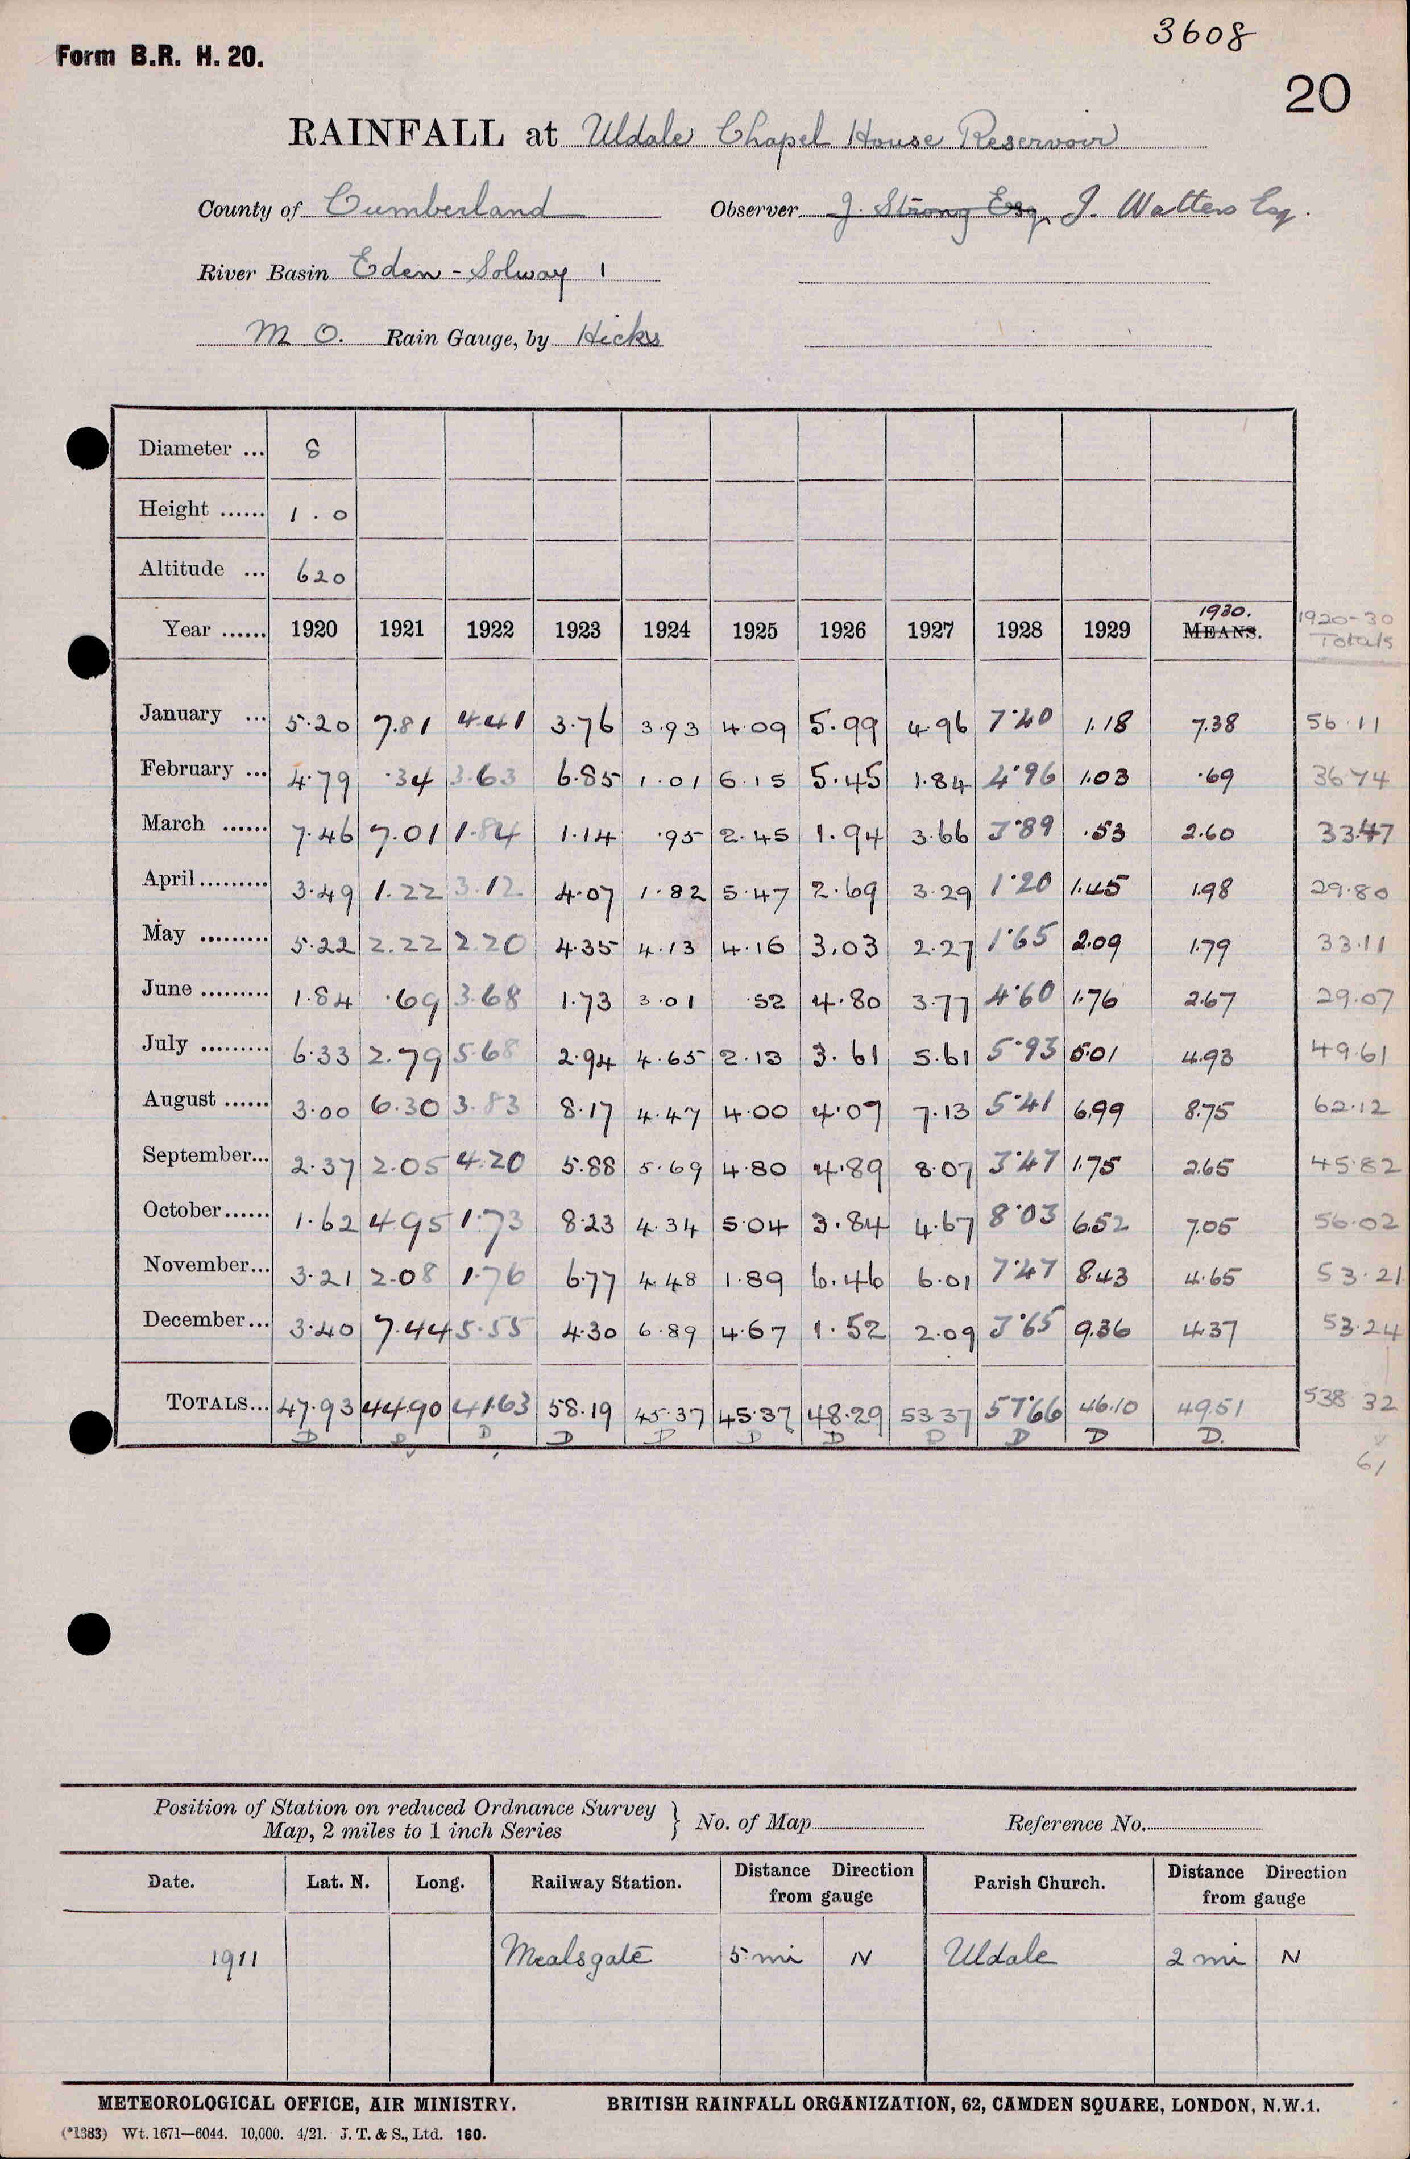 3608
Form B.R. H. 20.
20
RAINFALL at Uldale Chapel House Reservoir
County of Cumberland Observer J. Strong Esq. J. Walters Esq.
River Basin Eden - Solway 1
M O. Rain Gauge, by Hicks
Diameter ... 8
Height ...... 1.0
Altitude ... 620
1930.
Year ...... 1920 1921 1922 1923 1924 1925 1926 1927 1928 1929 MEANS. 1920-30 Totals
January ... 5.20 7.81 4.41 3.76 3.93 4.09 5.99 4.96 7.40 1.18 7.38 56.11
February ... 4.79 .34 3.63 6.85 1.01 6.15 5.45 1.84 4.96 1.03 .69 36.74
March ...... 7.46 7.01 1.84 1.14 .95 2.45 1.94 3.66 3.89 .53 2.60 33.47
April ......... 3.49 1.22 3.12 4.07 1.82 5.47 2.69 3.29 1.20 1.45 1.98 29.80
May ......... 5.22 2.22 2.20 4.35 4.13 4.16 3.03 2.27 1.65 2.09 1.79 33.11
June ......... 1.84 .69 3.68 1.73 3.01 .52 4.80 3.77 4.60 1.76 2.67 29.07
July ......... 6.33 2.79 5.68 2.94 4.65 2.13 3.61 5.61 5.93 5.01 4.93 49.61
August ...... 3.00 6.30 3.83 8.17 4.47 4.00 4.07 7.13 5.41 6.99 8.75 62.12
September... 2.37 2.05 4.20 5.88 5.69 4.80 4.89 8.07 3.47 1.75 2.65 45.82
October...... 1.62 4.95 1.73 8.23 4.34 5.04 3.84 4.67 8.03 6.52 7.05 56.02
November... 3.21 2.08 1.76 6.77 4.48 1.89 6.46 6.01 7.47 8.43 4.65 53.21
December... 3.40 7.44 5.55 4.30 6.89 4.67 1.52 2.09 3.65 9.36 4.37 53.24
TOTALS... 47.93 44.90 41.63 58.19 45.37 45.37 48.29 53.37 57.66 46.10 49.51 538.32
D D D D D D D D D D D.
61
Position of Station on reduced Ordnance Survey
Map, 2 miles to 1 inch Series } No. of Map Reference No.
Date. Lat. N. Long. Railway Station. Distance Direction from gauge Parish Church. Distance Direction from gauge
1911 Mealsgate 5 mi N Uldale 2 mi N
METEOROLOGICAL OFFICE, AIR MINISTRY. BRITISH RAINFALL ORGANIZATION, 62, CAMDEN SQUARE, LONDON, N.W.1.
(*1383) Wt. 1671—6044. 10,000. 4/21. J. T. & S., Ltd. 160.